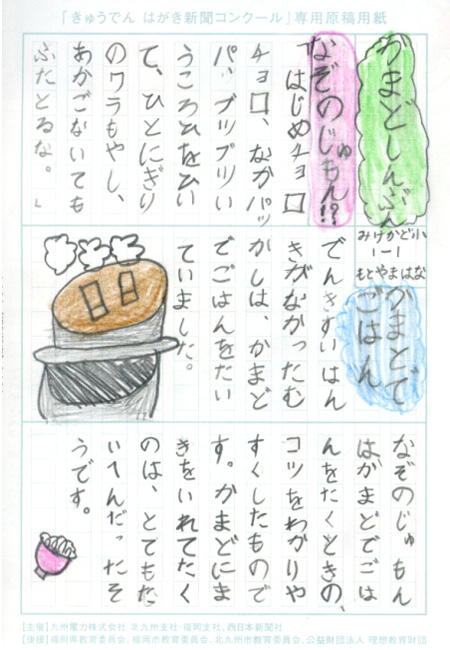 「きゅうでん はがき新聞コンクール」専用原稿用紙
かまどしんぶん
みけかど小
1-1
もとやまはな
なぞのじゅもん!?
「はじめチョロ
チョロ、なかパッ
パッ ブツブツいい
うころひをひい
て、ひとにぎり
のワラもやし、
あかごないても
ふたとるな。」
かまどで
ごはん
でんきすいはん
きがなかったむ
かしは、かまど
でごはんをたい
ていました。
なぞのじゅもん
はかまどでごは
んをたくときの、
コツをわかりや
すくしたもので
す。かまどにま
きをいれてたく
のは、とてもた
いへんだったそ
うです。
【主催】九州電力株式会社 北九州支社・福岡支社、西日本新聞社
【後援】福岡県教育委員会、福岡市教育委員会、北九州市教育委員会、公益財団法人 理想教育財団